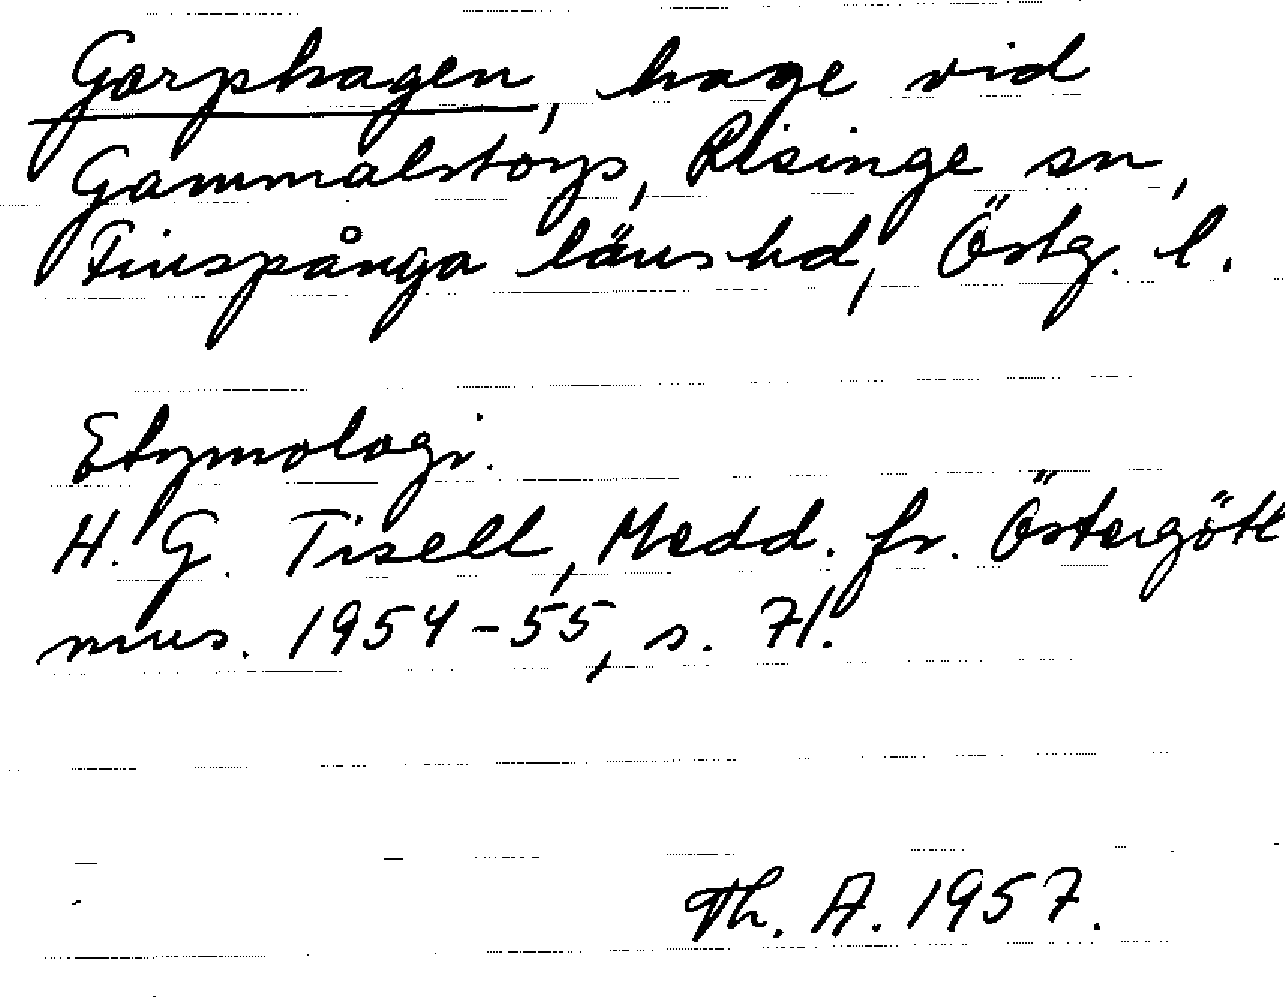 Gorphagen, hage vid
Gammalstorp, Risinge sn,
Finspånga länshd, Östg. l.
Etymologi.
H. G. Tisell, Medd. fr. Östergötl
mus. 1954-55, s. 71.
Th. A. 1957.